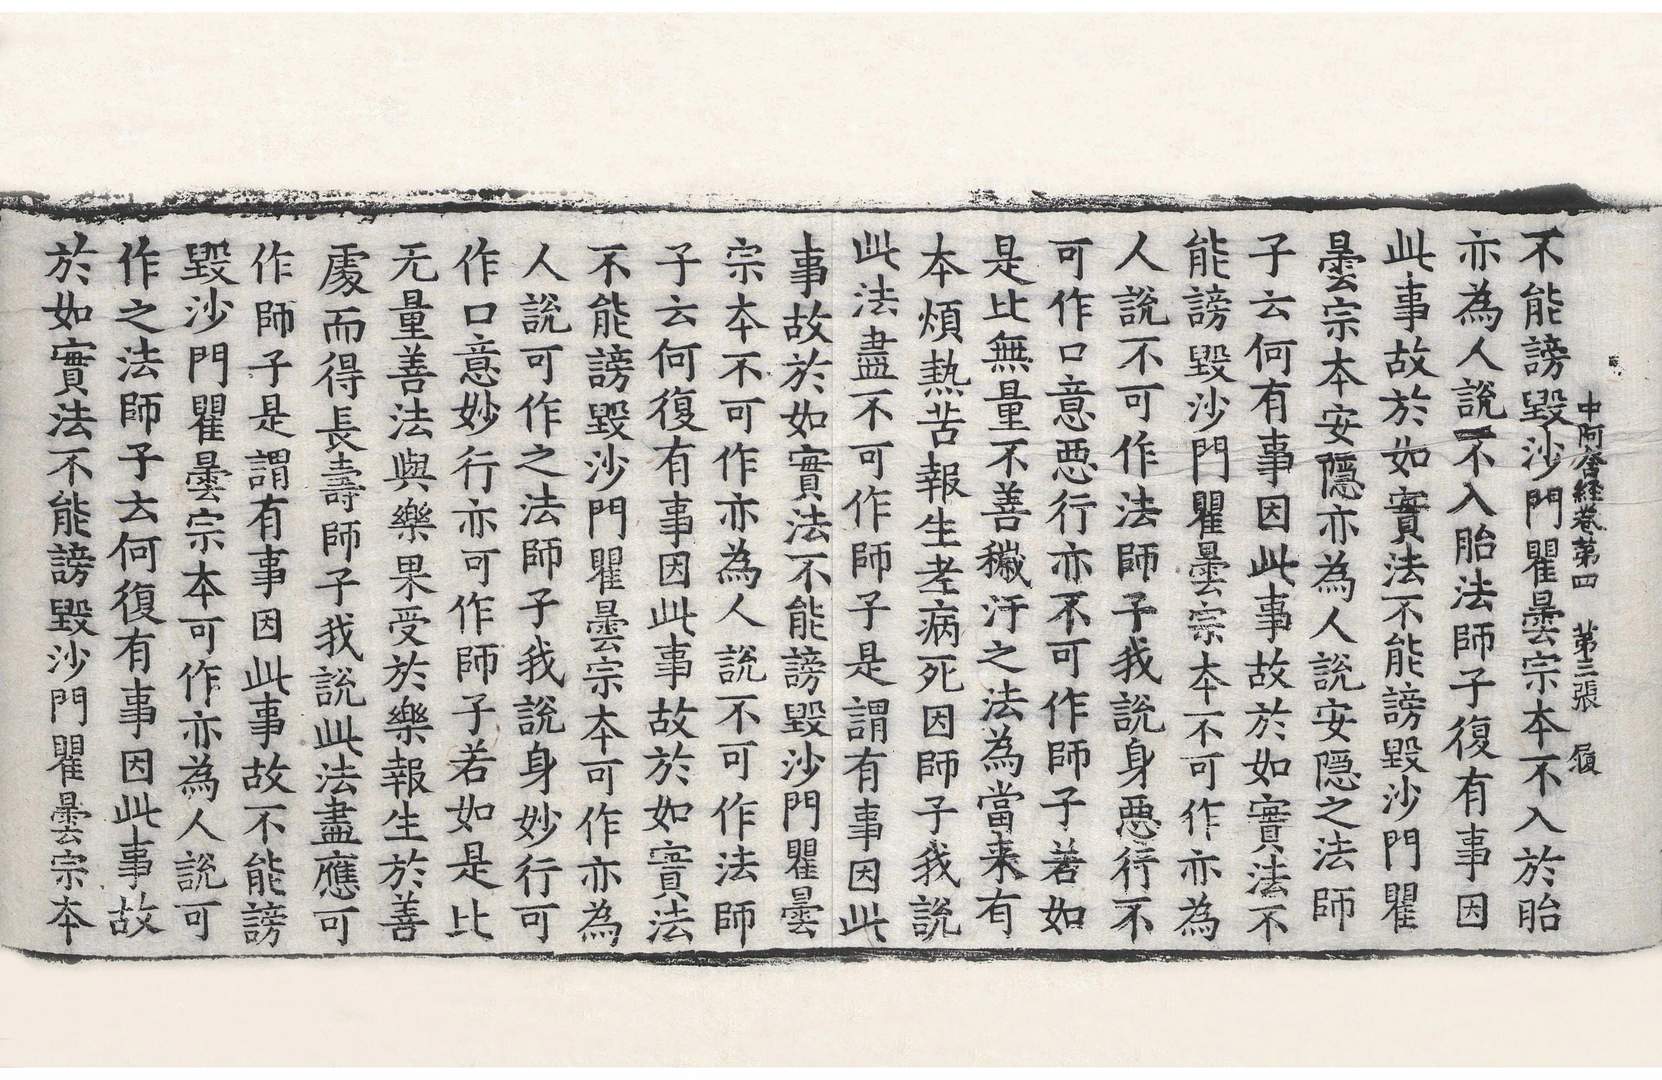 中阿含経卷第四　第三張　履
不能謗毀沙門瞿曇宗本不入於胎
亦為人說不入胎法師子復有事因
此事故於如實法不能謗毀沙門瞿
曇宗本安隱亦為人說安隱之法師
子云何有事因此事故於如實法不
能謗毀沙門瞿曇宗本不可作亦為
人說不可作法師子我說身悪行不
可作口意悪行亦不可作師子若如
是比無量不善穢汙之法為當来有
本煩熱苦報生老病死因師子我說
此法盡不可作師子是謂有事因此
事故於如實法不能謗毀沙門瞿曇
宗本不可作亦為人說不可作法師
子云何復有事因此事故於如實法
不能謗毀沙門瞿曇宗本可作亦為
人說可作之法師子我說身妙行可
作口意妙行亦可作師子若如是比
无量善法與樂果受於樂報生於善
處而得長壽師子我說此法盡應可
作師子是謂有事因此事故不能謗
毀沙門瞿曇宗本可作亦為人說可
作之法師子云何復有事因此事故
於如實法不能謗毀沙門瞿曇宗本